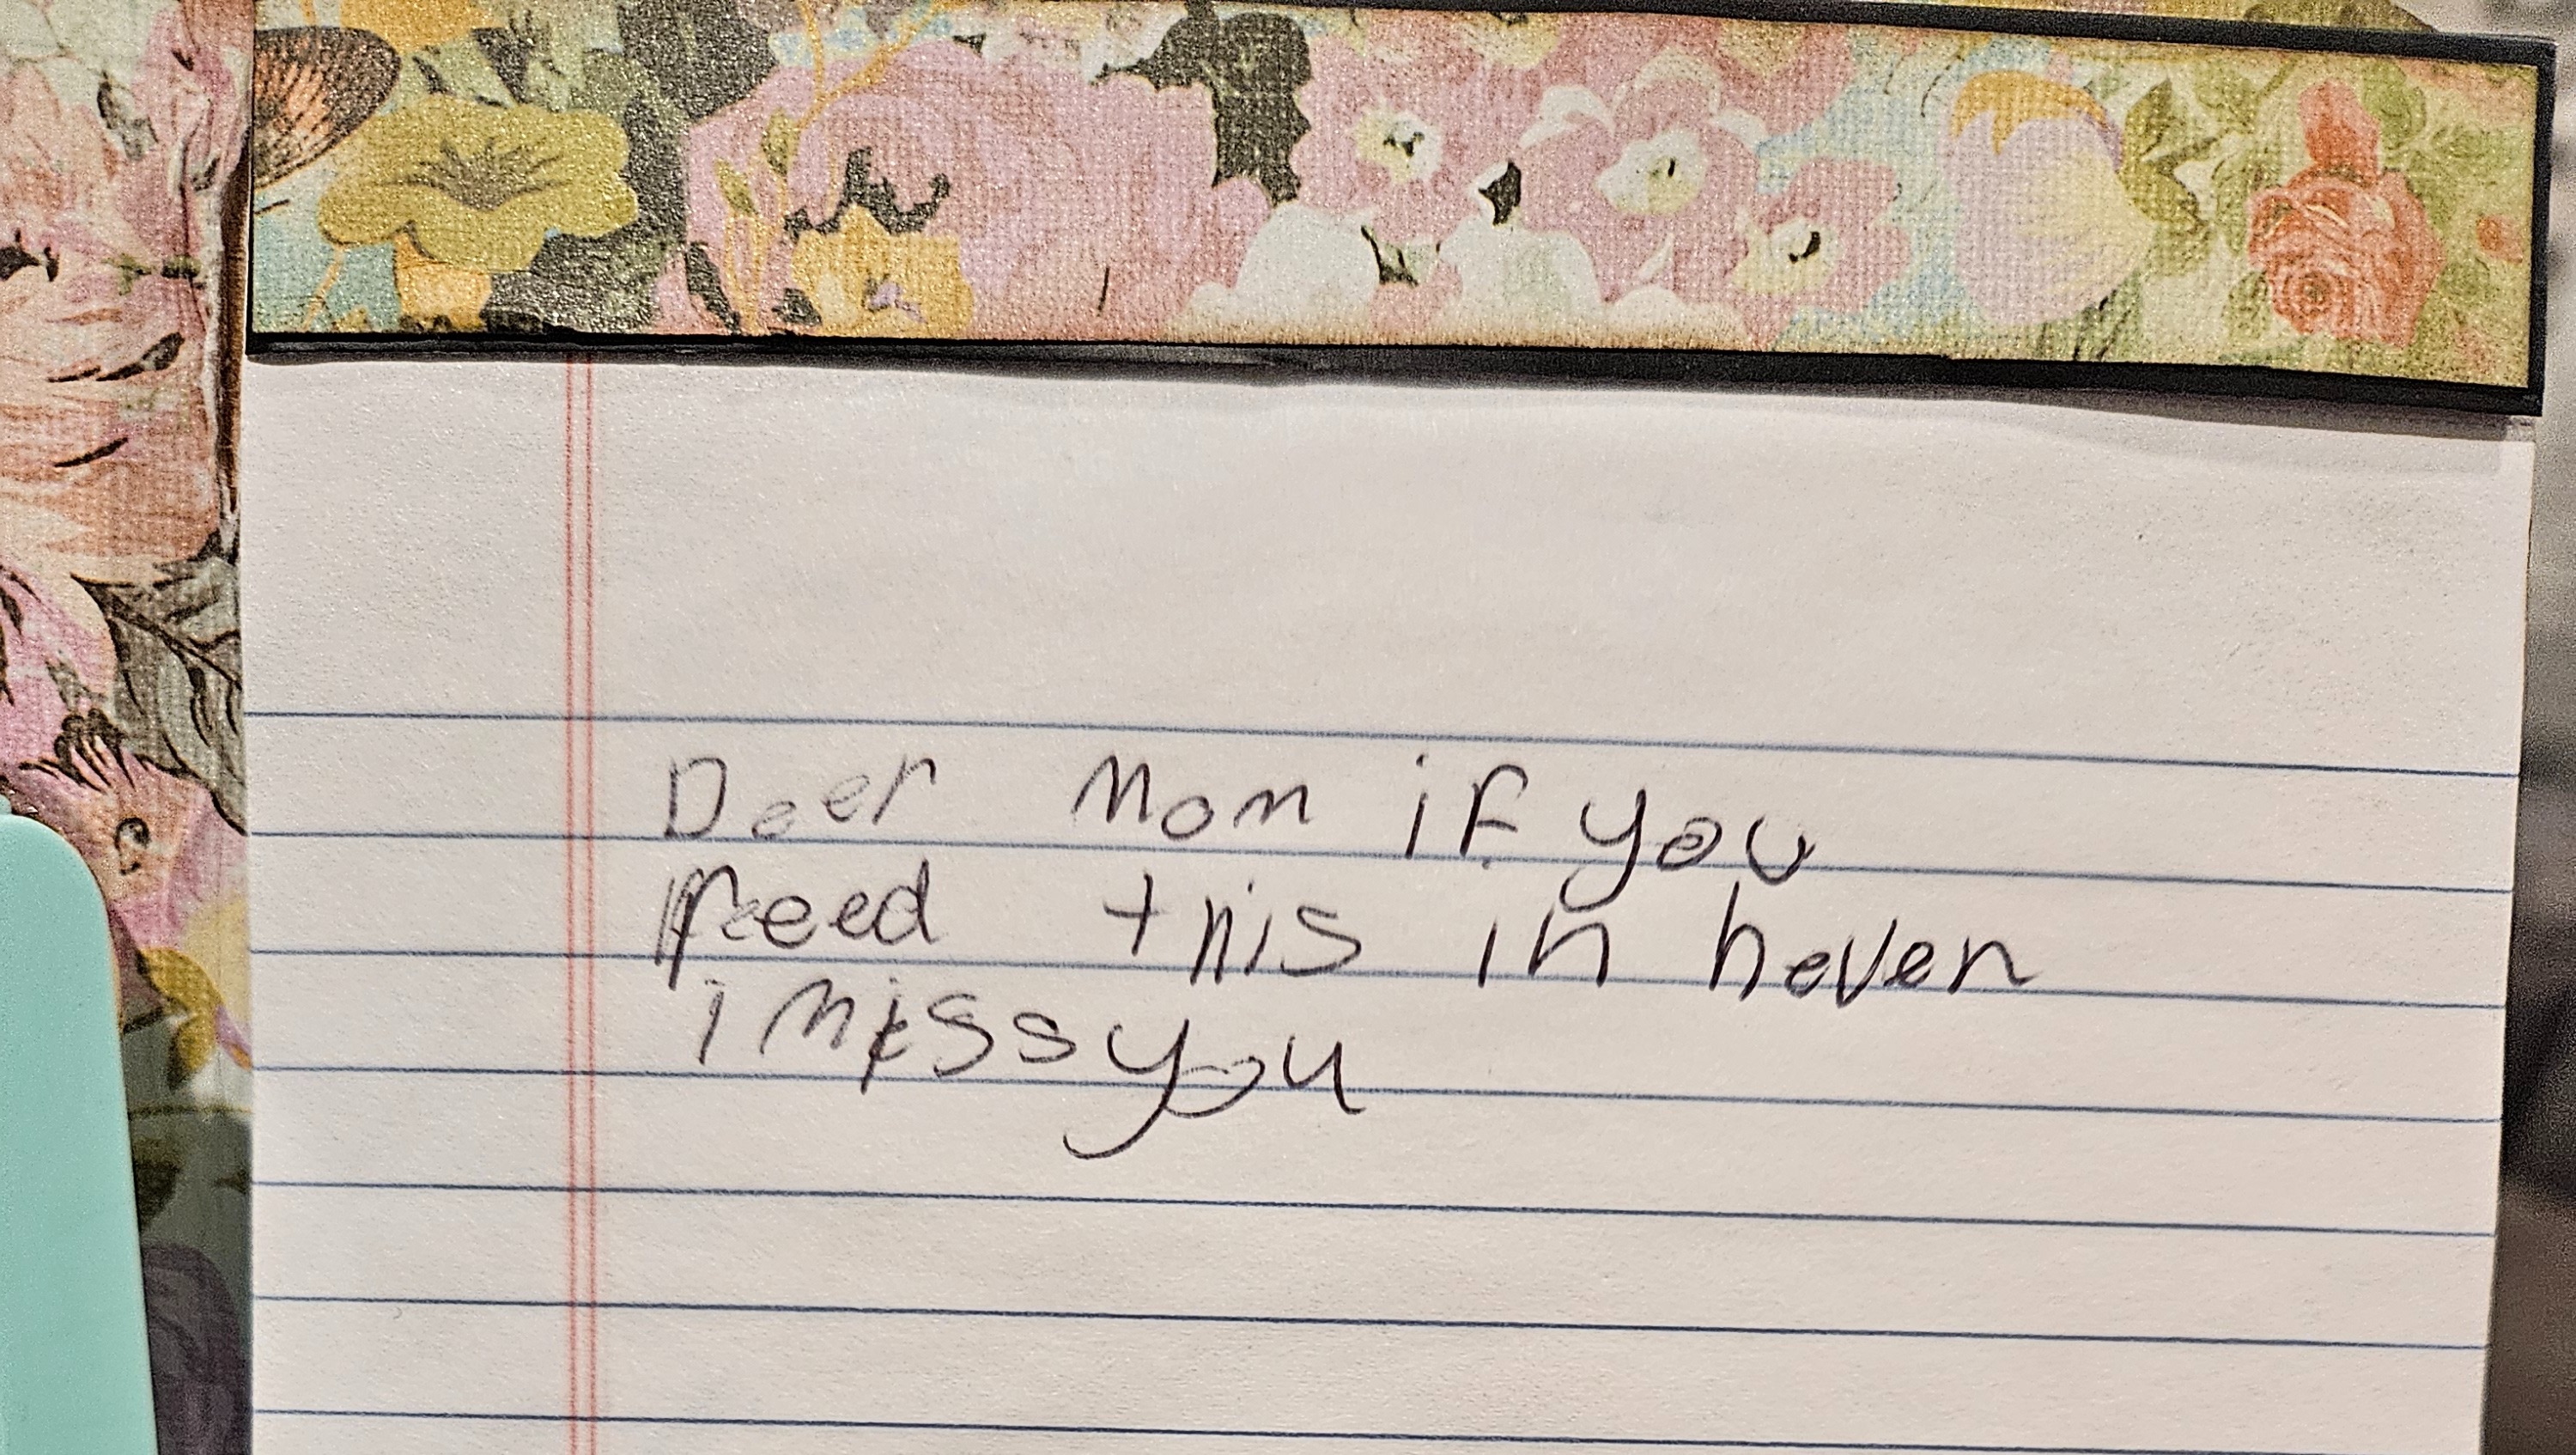 Deer Mom if you
reed this in heven
i miss you